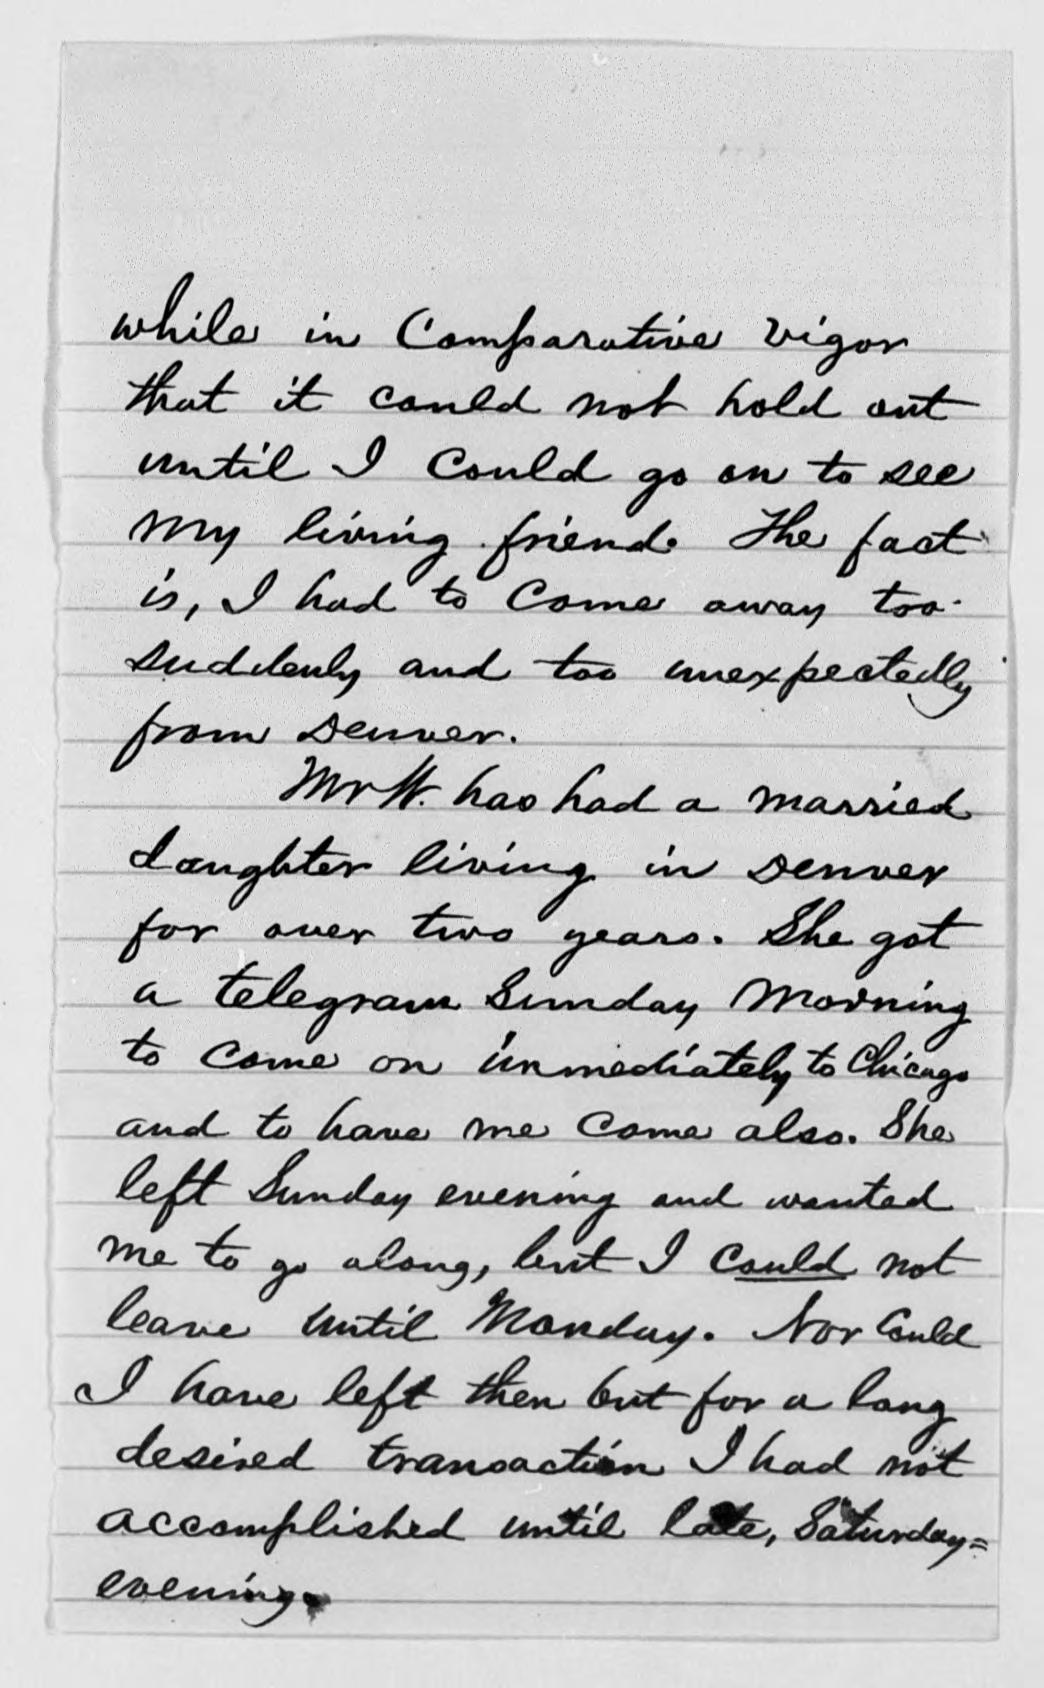 while in Comparative vigor
that it could not hold out
until I could go on to see
my living friend. The fact
is, I had to come away too
suddenly and too unexpectedly
from Denver.
Mr W. has had a married
daughter living in Denver
for over two years. She got
a telegram Sunday morning
to come on immediately to Chicago
and to have me come also. She
left Sunday evening and wanted
me to go along, but I could not
leave until Monday. Nor could
I have left then but for a long
desired transaction I had not
accomplished until late, Saturday=
evening.